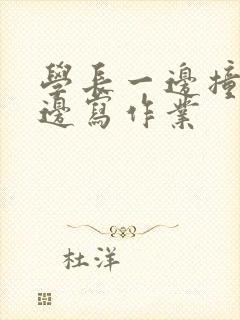 學長一邊撞
邊寫作業
杜洋